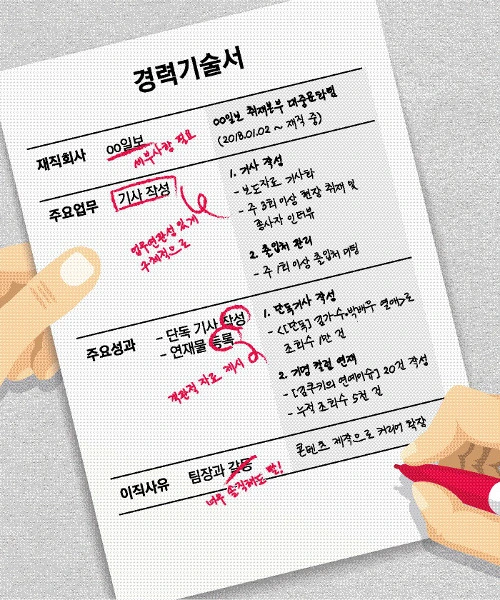 경력기술서
재직회사
00일보
세부사항 필요
00일보 취재본부 대중문화팀
(2018.01.02 ~ 재직 중)
주요업무
기사 작성
업무연관성 있게
구체적으로
1. 기사 작성
- 보도자료 기사화
- 주 3회 이상 현장 취재 및
종사자 인터뷰
2. 출입처 관리
- 주 1회 이상 출입처 미팅
주요성과
- 단독 기사 작성
- 연재물 등록
객관적 자료 제시
1. 단독기사 작성
- <[단독] 김가수, 박배우 열애>로
조회수 1만 건
2. 기명 칼럼 연재
- [김쿠키의 연예이슈] 20건 작성
- 누적 조회수 5천 건
이직사유
팀장과 갈등
너무 솔직해도 탈!
콘텐츠 제작으로 커리어 확장